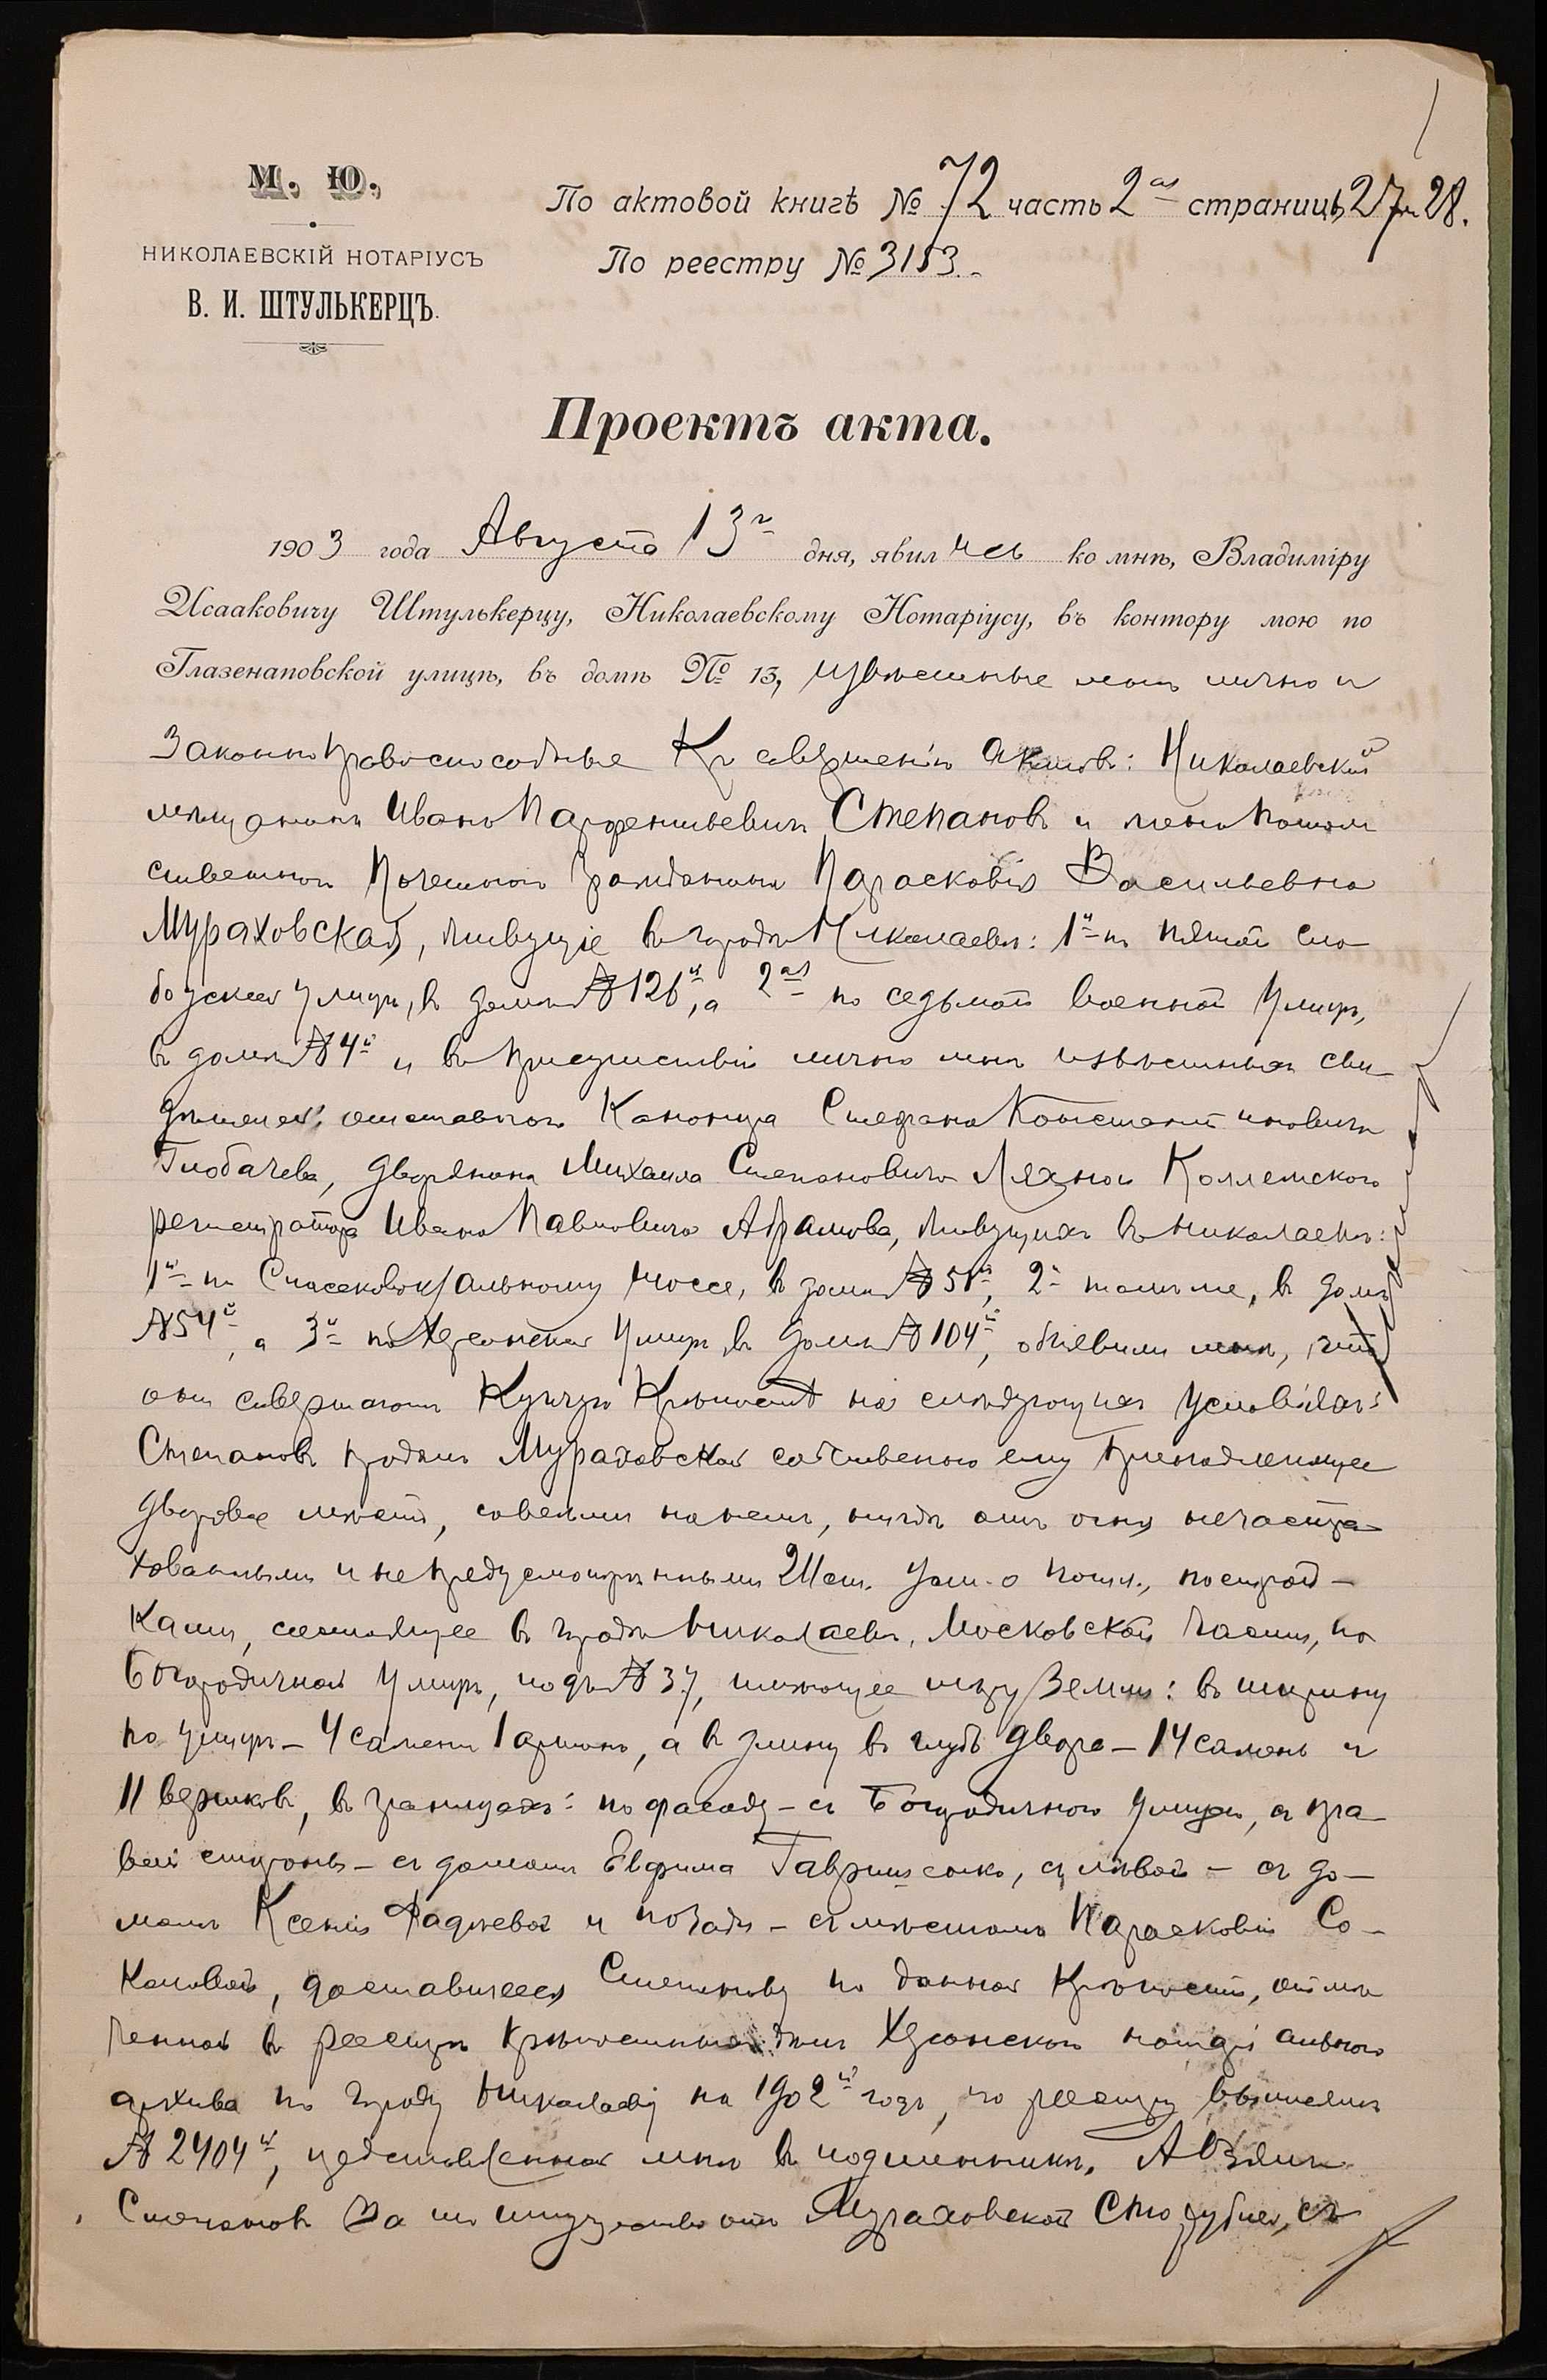 М. Ю.
По актовой книгѣ № 72 часть 2ая страницы 27 и 28.
НИКОЛАЕВСКІЙ НОТАРІУСЪ
По реестру № 3153.
В. И. ШТУЛЬКЕРЦЪ.
Проектъ акта.
1903 года Августа 13го дня, явились ко мнѣ, Владиміру
Исааковичу Штулькерцу, Николаевскому Нотаріусу, въ контору мою по
Глазенаповской улицѣ, въ домѣ № 13, извѣстные мнѣ лично и
законно правоспособные къ совершенію актовъ: Николаевскій
мѣщанинъ Иванъ Парфентьевичъ Степановъ и жена потом
ственнаго почетнаго гражданина Парасковія Васильевна
Мураховская, живущіе въ городѣ Николаевѣ: 1й по пятой Сло
бодской улицѣ, въ домѣ № 126й, а 2ая по седьмой Военной улицѣ,
въ домѣ № 4й и въ присутствіи лично мнѣ извѣстныхъ сви
дѣтелей: отставного канонира Стефана Константиновича
Глобачева, дворянина Михаила Степановича Ляхно и Коллежскаго
регистратора Ивана Павловича Абрамова, живущихъ въ Николаевѣ:
1й по Спасековокзальному шоссе, въ домѣ № 51й, 2й тамъ же, въ домѣ
№ 54й, а 3й по Херсонской улицѣ, въ домѣ № 104й, объявили мнѣ, что
они совершаютъ купчую крѣпость на слѣдующихъ условіяхъ:
Степановъ продалъ Мураховской собственно ему принадлежащее
дворовое мѣсто, со всѣми на немъ, нигдѣ отъ огня незастра
хованными и непредусмотрѣнными 211 ст. Уст. о пошл., построй-
ками, состоящее въ городѣ Николаевѣ, Московской части, по
Богородичной улицѣ, подъ № 37, имѣющее мѣру земли: въ ширину
по улицѣ - 4 сажени 1 аршинъ, а въ длину въ глубь двора - 14 сажень и
11 вершковъ, въ границахъ: по фасаду - съ Богородичною улицею, съ пра
вой стороны - съ домомъ Евфима Гаврищенко, съ лѣвой - съ до-
момъ Ксеніи Фадѣевой и позади - съ мѣстомъ Парасковіи Со-
коловой, доставшееся Степанову по данной крѣпости, отмѣ
ченной въ реестрѣ крѣпостныхъ дѣлъ Херсонскаго нотаріальнаго
архива по городу Николаеву на 1902й годъ, по реестру
№ 2404й, представленной мнѣ въ подлинникѣ. А взялъ
Степановъ за то имущество отъ Мураховской сто рублей, съ